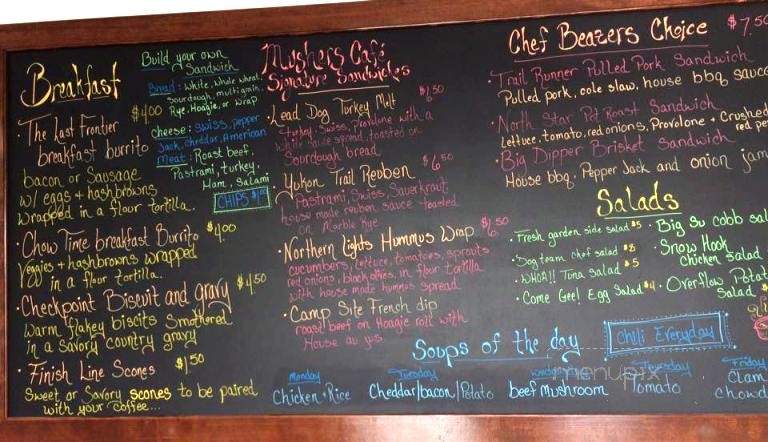 Breakfast
$4.00
· The Last Frontier
breakfast burrito
bacon or Sausage
w/ eggs + hashbrowns
Wrapped in a flour tortilla.
· Chow Time breakfast Burrito $4.00
Veggies + hashbrowns wrapped
in a flour tortilla.
· Checkpoint Biscuit and gravy $4.50
Warm flakey biscits Smothered
in a savory country gravy
· Finish Line Scones $1.50
Sweet or Savory scones to be paired
with your coffee...
Build your own
Sandwich
Bread: White, Whole wheat,
Sourdough, multigrain,
Rye, Hoagie, or Wrap
cheese: Swiss, pepper
Jack, cheddar, American
Meat: Roast beef,
Pastrami, turkey,
Ham, Salami
CHIPS
Mushers Café
Signature Sandwiches
· Lead Dog Turkey Melt $6.50
turkey, Swiss, provolone with a
toasted on
Sourdough bread
· Yukon Trail Reuben $6.50
Pastrami, Swiss, Sauerkraut,
house made reuben sauce toasted
on Marble Rye
· Northern Lights Hummus Wrap $6.50
cucumbers, lettuce, tomatoes, sprouts
red onions, black olives, in flour tortilla
with house made hummus spread
· Camp Site French dip
roast beef on Hoagie roll with
House au jus
Chef Beazers Choice $7.50
· Trail Runner Pulled Pork Sandwich
Pulled pork, cole slaw, house bbq sauce
· North Star Pot Roast Sandwich
Lettuce, tomato, red onions, Provolone + Crushed
red pe
· Big Dipper Brisket Sandwich
House bbq, Pepper Jack and onion jam
Salads
· Fresh garden side salad $5
· Dog team chef salad $8
· WHOA!! Tuna salad $5
· Come Gee! Egg Salad $4
· Big Su cobb sal
· Snow Hook
Chicken salad
· Overflow Potat
Salad $
Soups of the day
Chili Everyday
Monday
Chicken + Rice
Tuesday
Cheddar/bacon/Potato
Wednesday
beef Mushroom
Thursday
Tomato
Friday
Clam
chowd
menupix